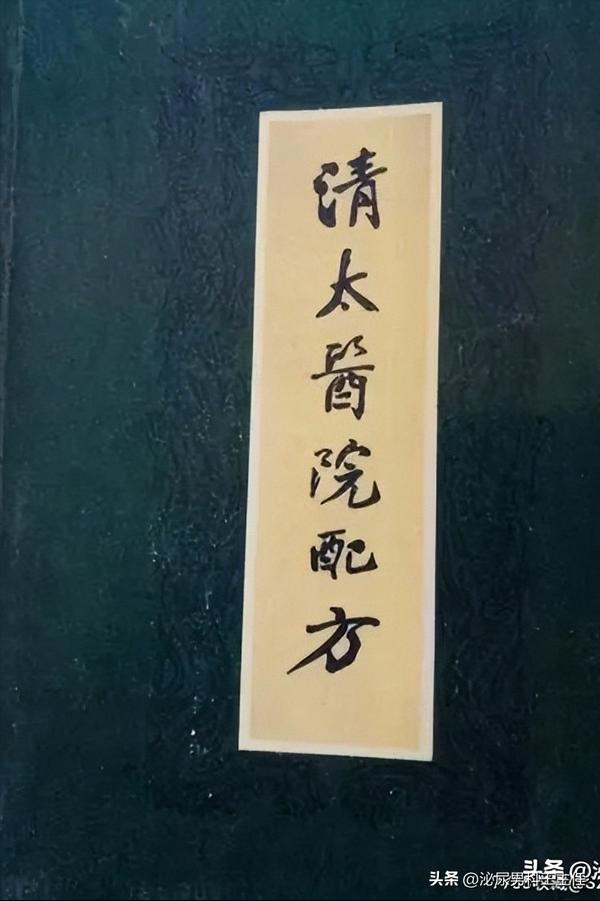 清太醫院配方
头条 @
头条 @泌尿男科